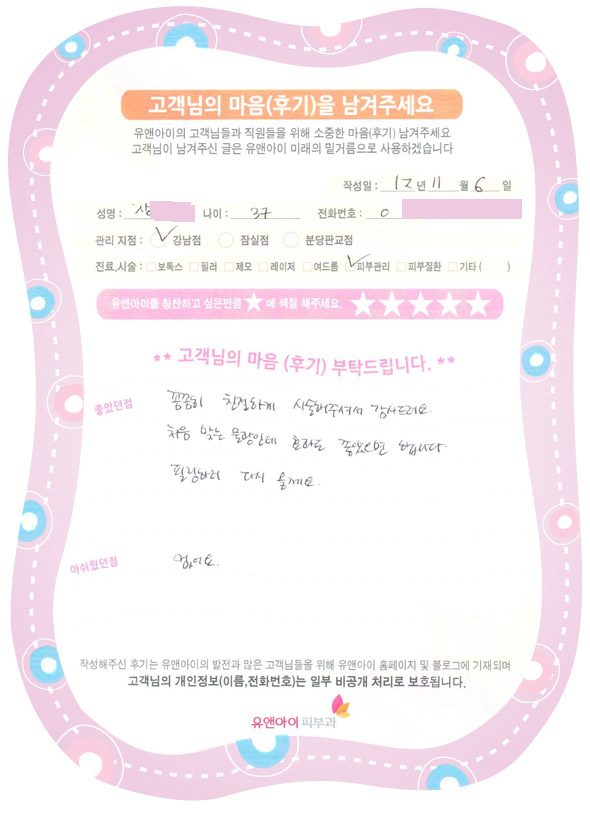 고객님의 마음(후기)을 남겨주세요
유앤아이의 고객님들과 직원들을 위해 소중한 마음(후기) 남겨주세요
고객님이 남겨주신 글은 유앤아이 미래의 밑거름으로 사용하겠습니다
작성일 : 12년 11월 6일
성명 : 장 나이 : 37 전화번호 : 0
관리 지점 : 강남점 잠실점 분당판교점
진료,시술 : 보톡스 필러 제모 레이저 여드름 피부관리 피부질환 기타 ( )
유앤아이를 칭찬하고 싶은만큼 ★에 색칠 해주세요. ★★★★★
** 고객님의 마음 (후기) 부탁드립니다. **
좋았던점 꼼꼼히 친절하게 시술해주셔서 감사드려요.
처음 맞는 물광인데 효과도 좋았으면 합니다.
필링하러 다시 올께요.
아쉬웠던점 없어요.
작성해주신 후기는 유앤아이의 발전과 많은 고객님들을 위해 유앤아이 홈페이지 및 블로그에 기재되며
고객님의 개인정보(이름,전화번호)는 일부 비공개 처리로 보호됩니다.
유앤아이 피부과